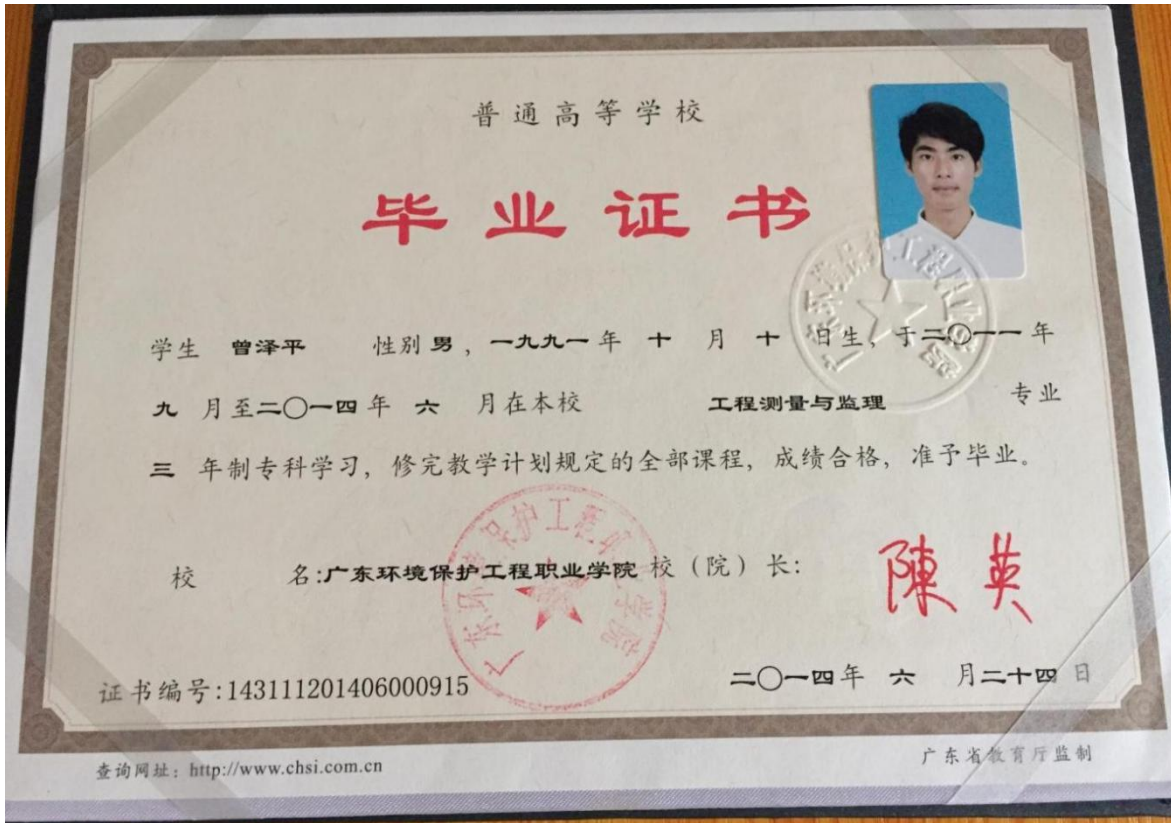 普通高等学校
毕业证书
学生 曾泽平 性别 男，一九九一 年 十 月 十 日生，于二〇一一 年
九 月至二〇一四 年 六 月在本校 工程测量与监理 专业
三 年制专科学习，修完教学计划规定的全部课程，成绩合格，准予毕业。
校 名:广东环境保护工程职业学院 校（院）长：
陳英
证书编号:143111201406000915
二〇一四年 六 月二十四 日
查询网址：http://www.chsi.com.cn
广东省教育厅监制
广东环境保护工程职业学院
广东环境保护工程职业学院